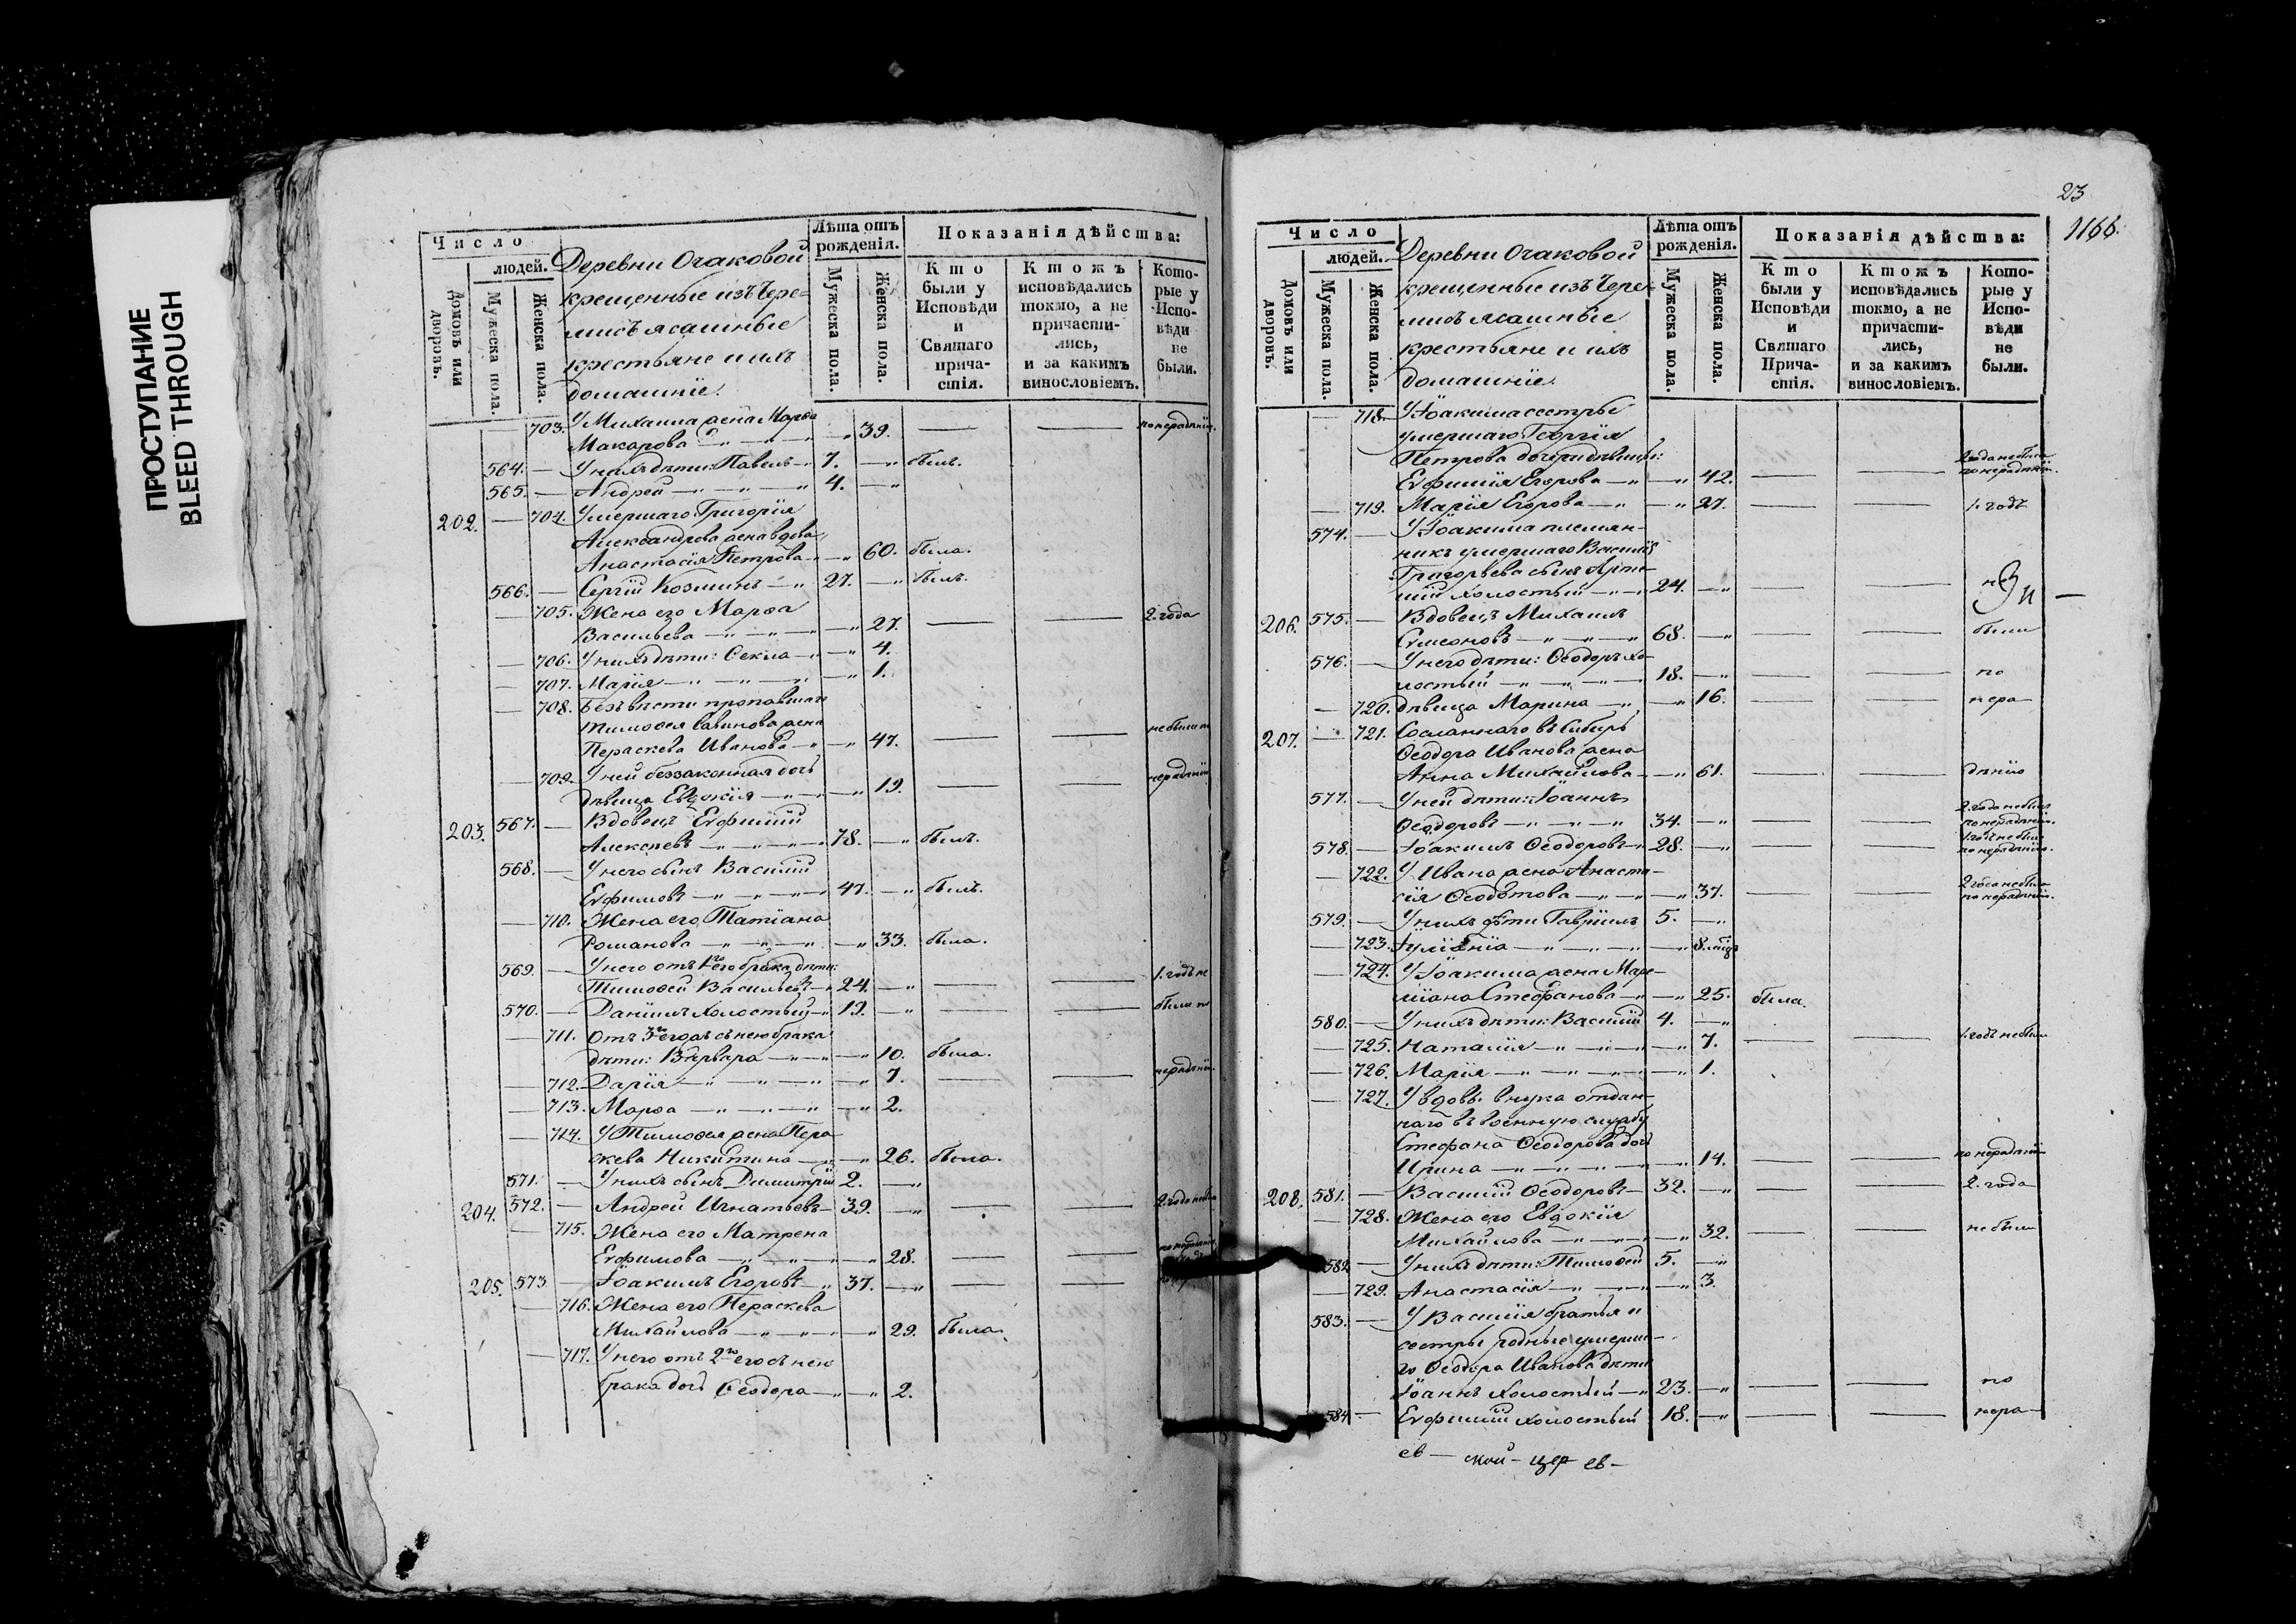 ПРОСТУПАНИЕ
BLEED THROUGH
Число
людей.
Домовъ или дворовъ.
Мужеска пола.
Женска пола.
Деревни Очаковой
крещенные изъ Чере-
мисъ ясашные
крестьяне и ихъ
домашніе.
Лѣта отъ рожденія.
Мужеска пола.
Женска пола.
Показанія дѣйства:
Кто были у Исповѣди и Святаго прича- стія.
Ктожъ исповѣдались токмо, а не причасти- лись, и за какимъ винословіемъ.
Кото- рые у Испо- вѣди не были.
— 703. У Михаила жена Марѳа
Макарова —„ —„ 39. — — по нерадѣнію.
564. — У нихъ дѣти: Павелъ —„ 7. —„ былъ.
565. — Андрей —„ —„ —„ 4. —„
202. — 704. Умершаго Григорія
Александрова жена вдова
Анастасія Петрова —„ —„ 60. была.
566. — Сергій Козминъ —„ 27. —„ былъ.
— 705. Жена его Марѳа
Васильева —„ —„ —„ 27. — — 2. года
— 706. У нихъ дѣти: Ѳекла —„ —„ 4.
— 707. Марія —„ —„ —„ —„ 1.
— 708. Безъ вѣсти пропавшаго
Тимоѳея Савинова жена
Параскева Иванова —„ —„ 47. — — не были по
— 709. У ней беззаконная дочь
дѣвица Евдокія —„ —„ 19. — — нерадѣнію
203. 567. — Вдовецъ Евѳимій
Алексѣевъ —„ —„ —„ 78. —„ былъ.
568. — У него сынъ Василій
Евѳимовъ —„ —„ —„ 47. —„ былъ.
— 710. Жена его Татіана
Романова —„ —„ —„ —„ 33. была.
569. — У него отъ 1го его брака дѣти:
Тимоѳей Васильевъ —„ 24. —„ — — 1. годъ не
570. — Даніилъ холостый —„ 19. —„ — — были по
— 711. Отъ 3го его съ нею брака
дѣти: Варвара —„ —„ —„ 10. была.
— 712. Дарія —„ —„ —„ —„ 7. — — нерадѣнію.
— 713. Марѳа —„ —„ —„ —„ 2.
— 714. У Тимоѳея жена Пара
скева Никитина —„ —„ 26. была.
571. — У нихъ сынъ Димитрій 2. —„
204. 572. — Андрей Игнатьевъ — 39. —„ — — 2. года небылъ
— 715. Жена его Матрена
Евѳимова —„ —„ —„ 28. — — по нерадѣнію.
205. 573 — Іоакимъ Егоровъ —„ 37. —„ — —
— 716. Жена его Параскева
Михайлова —„ —„ —„ 29. была.
— 717. У него отъ 2го его съ нею
брака дочь Ѳеодора —„ —„ 2.
23
1166.
Число
людей.
Домовъ или дворовъ.
Мужеска пола.
Женска пола.
Деревни Очаковой
крещенные изъ Чере-
мисъ ясашные
крестьяне и ихъ
домашніе.
Лѣта отъ рожденія.
Мужеска пола.
Женска пола.
Показанія дѣйства:
Кто были у Исповѣди и Святаго Прича- стія.
Ктожъ исповѣдались токмо, а не причасти- лись, и за какимъ винословіемъ.
Кото- рые у Испо- вѣди не были.
— 718. У Іоакима сестры
умершаго Георгія
Петрова дочери дѣвицы:
Евѳимія Егорова —„ —„ 42. — — 2 года не была по нерадѣнію.
— 719. Марія Егорова —„ —„ 27. — — 1. годъ
574. — У Іоакима племян-
никъ умершаго Василія
Григорьева сынъ Арте-
мій холостый —„ —„ 24. —„ — —
206. 575. — Вдовецъ Михаилъ
Симеоновъ —„ —„ —„ 68. —„ — — были
576. — У него дѣти: Ѳеодоръ хо-
лостый —„ —„ —„ 18. —„ — — по
— 720. дѣвица Марина —„ —„ 16. — — нера
207. — 721. Сосланнаго въ Сибирь
Ѳеодора Иванова жена
Анна Михайлова —„ 61. — — дѣнію
577. — У ней дѣти: Іоаннъ
Ѳеодоровъ —„ —„ —„ 34. —„ — — 2. года не былъ по нерадѣнію.
578. — Іоакимъ Ѳеодоровъ —„ 28. —„ — — 1. годъ не былъ по нерадѣнію.
— 722. У Ивана жена Анаста-
сія Ѳеодотова —„ —„ —„ 37. — — 2 года не была по нерадѣнію.
579. — У нихъ дѣти Гавріилъ 5. —„
— 723. Іуліанія —„ —„ —„ —„ 8. мѣся
— 724. У Іоакима жена Мар-
міана Стефанова —„ —„ 25. была.
580. — У нихъ дѣти: Василій 4. —„
— 725. Наталія —„ —„ —„ —„ 7. — — 1. годъ не был
— 726. Марія —„ —„ —„ —„ 1.
— 727. У вдовы внука отдан-
наго въ военную службу
Стефана Ѳеодорова дочь
Ирина —„ —„ —„ —„ 14. — — по нерадѣнію
208. 581. — Василій Ѳеодоровъ — 32. —„ — — 2. года
— 728. Жена его Евдокія
Михайлова —„ —„ —„ 32. — — не были
582. — У нихъ дѣти: Тимоѳей 5. —„
— 729. Анастасія —„ —„ —„ 3.
583. — У Василія братья и
сестры родные умерша-
го Ѳеодора Иванова дѣти
Іоаннъ холостый —„ 23. —„ — — по
584 — Евѳимій холостый 18. —„ — — нера-
ев — ской — цер ев —